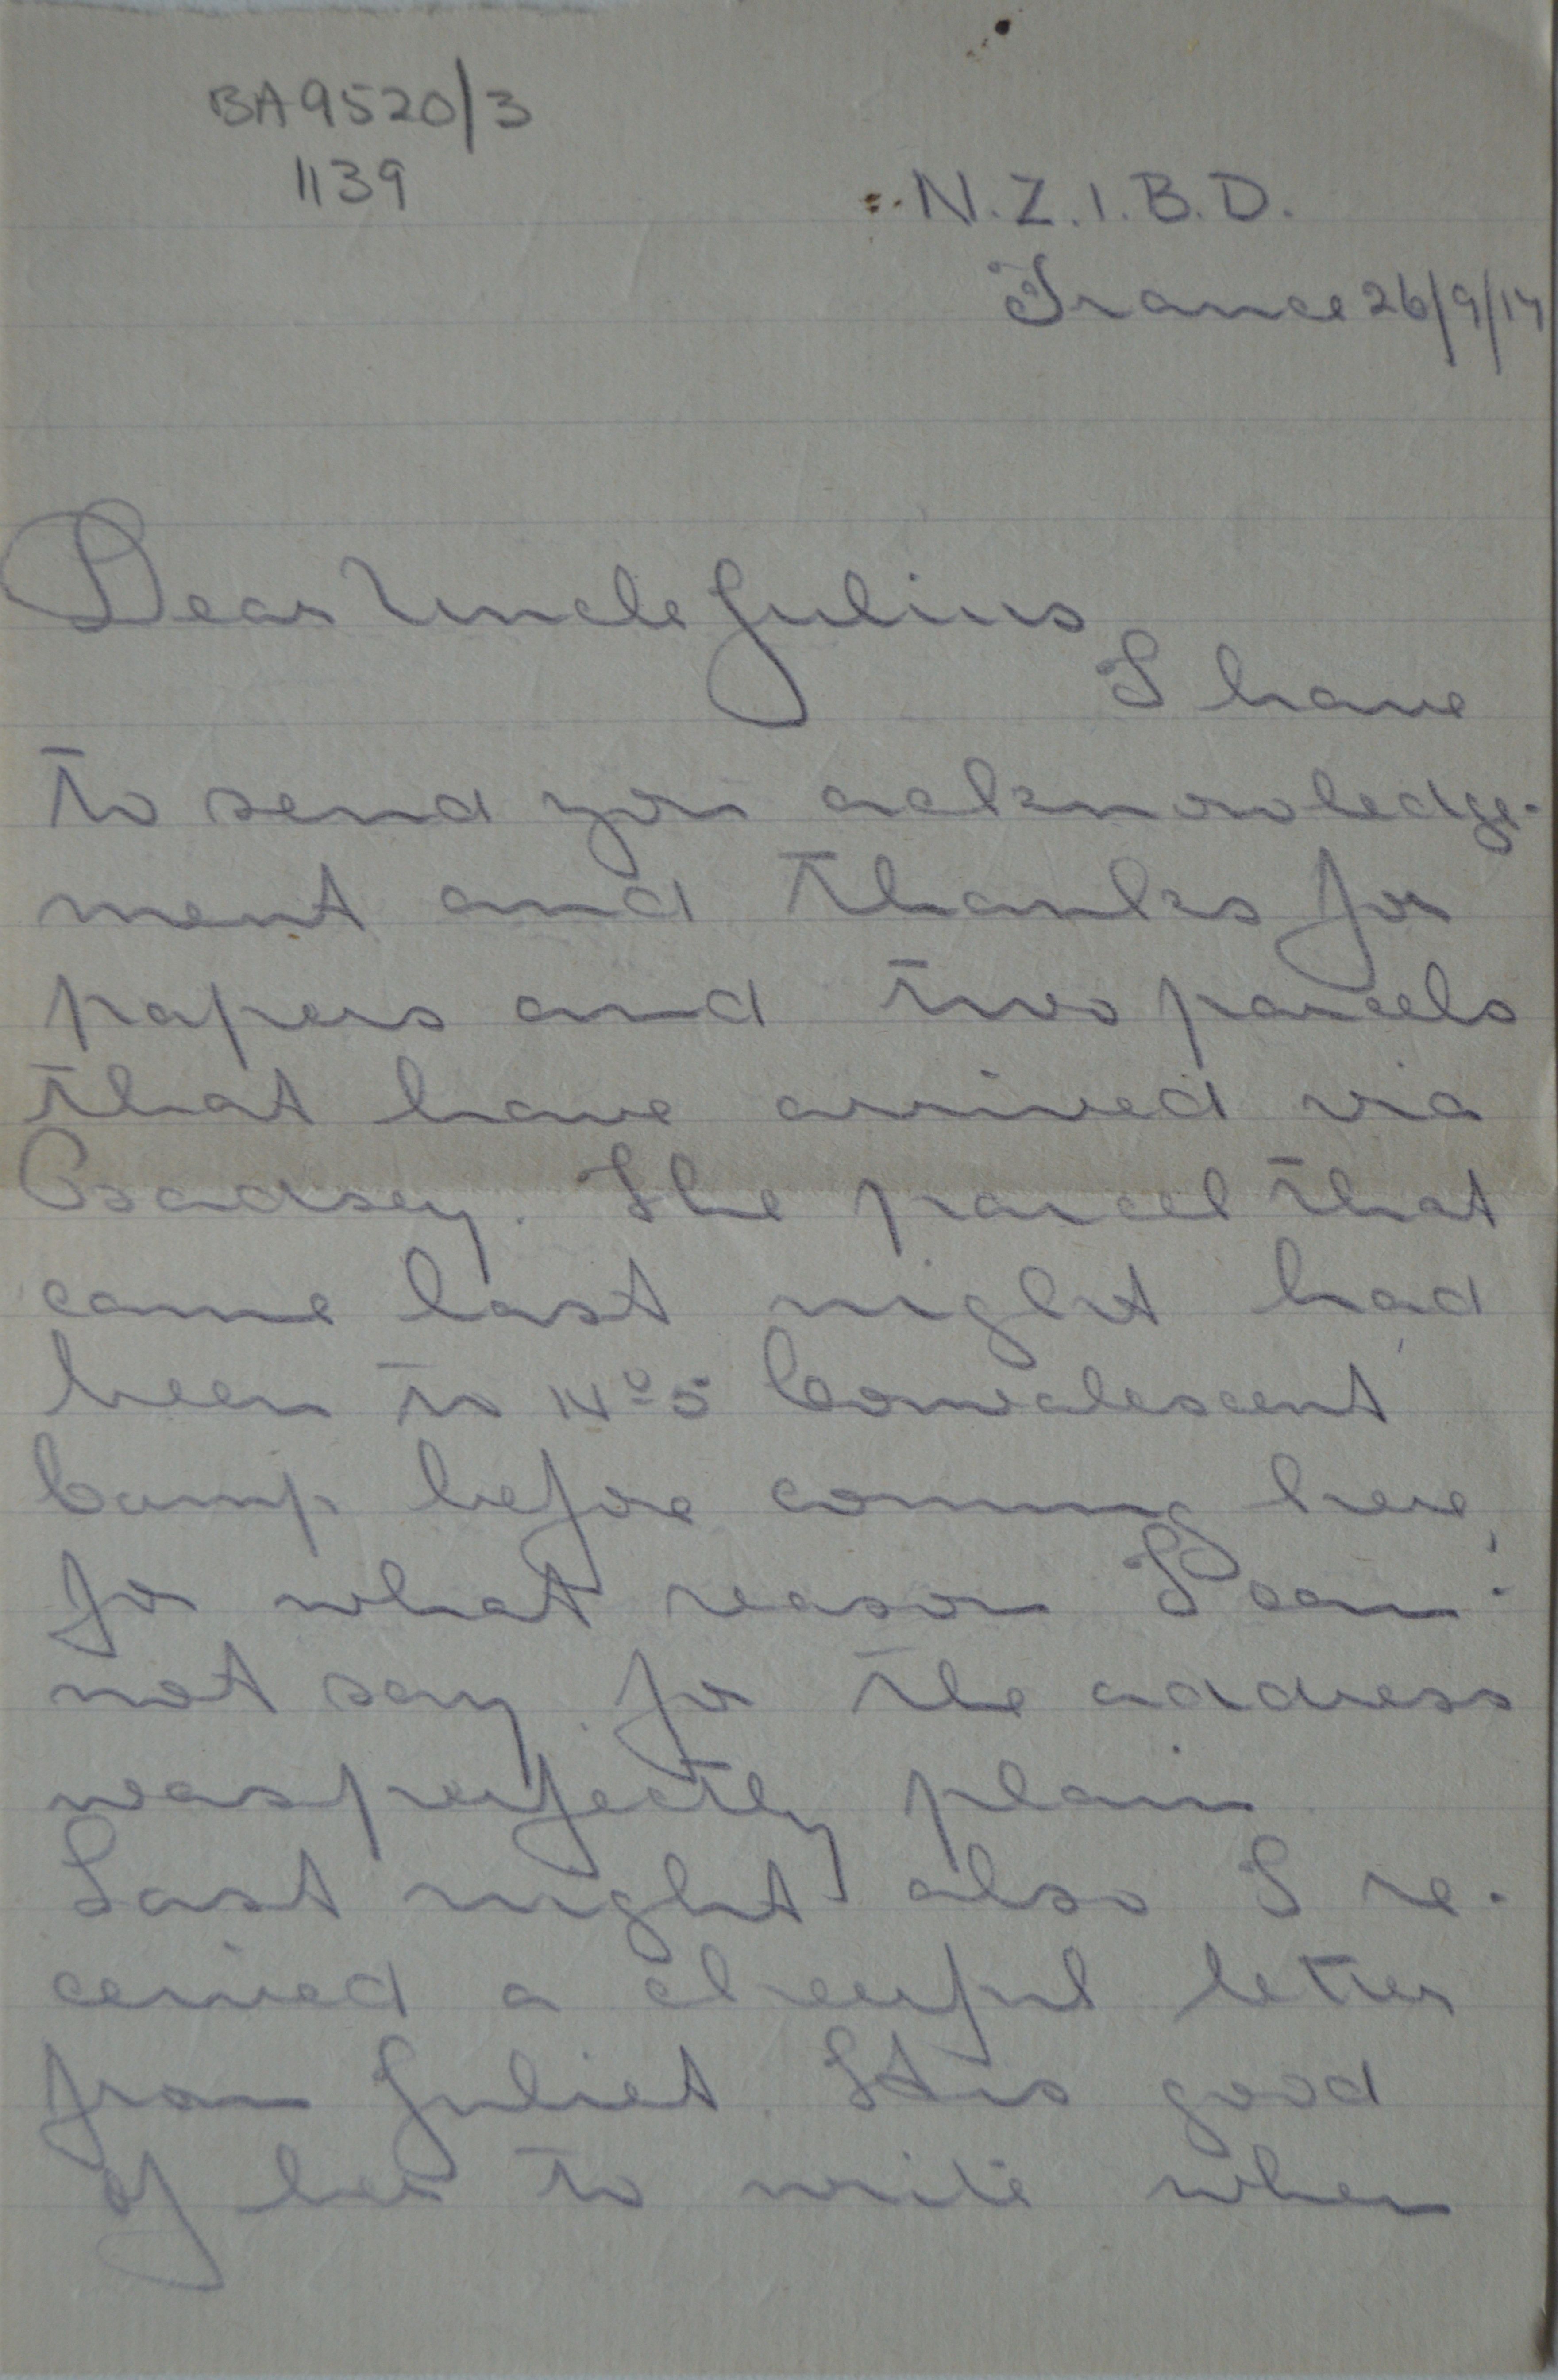 BA9520/3
1139
N.Z.I.B.D.
France 26/9/17
Dear Uncle Julius
I have
to send you acknowledge-
ment and thanks for
papers and two parcels
that have arrived via
Badsey. The parcel that
came last night had
been to Nº 5 Convalescent
Camp before coming here,
for what reason I can-
not say for the address
was perfectly plain
Last night also I re-
ceived a cheerful letter
from Juliet. It is good
of her to write when